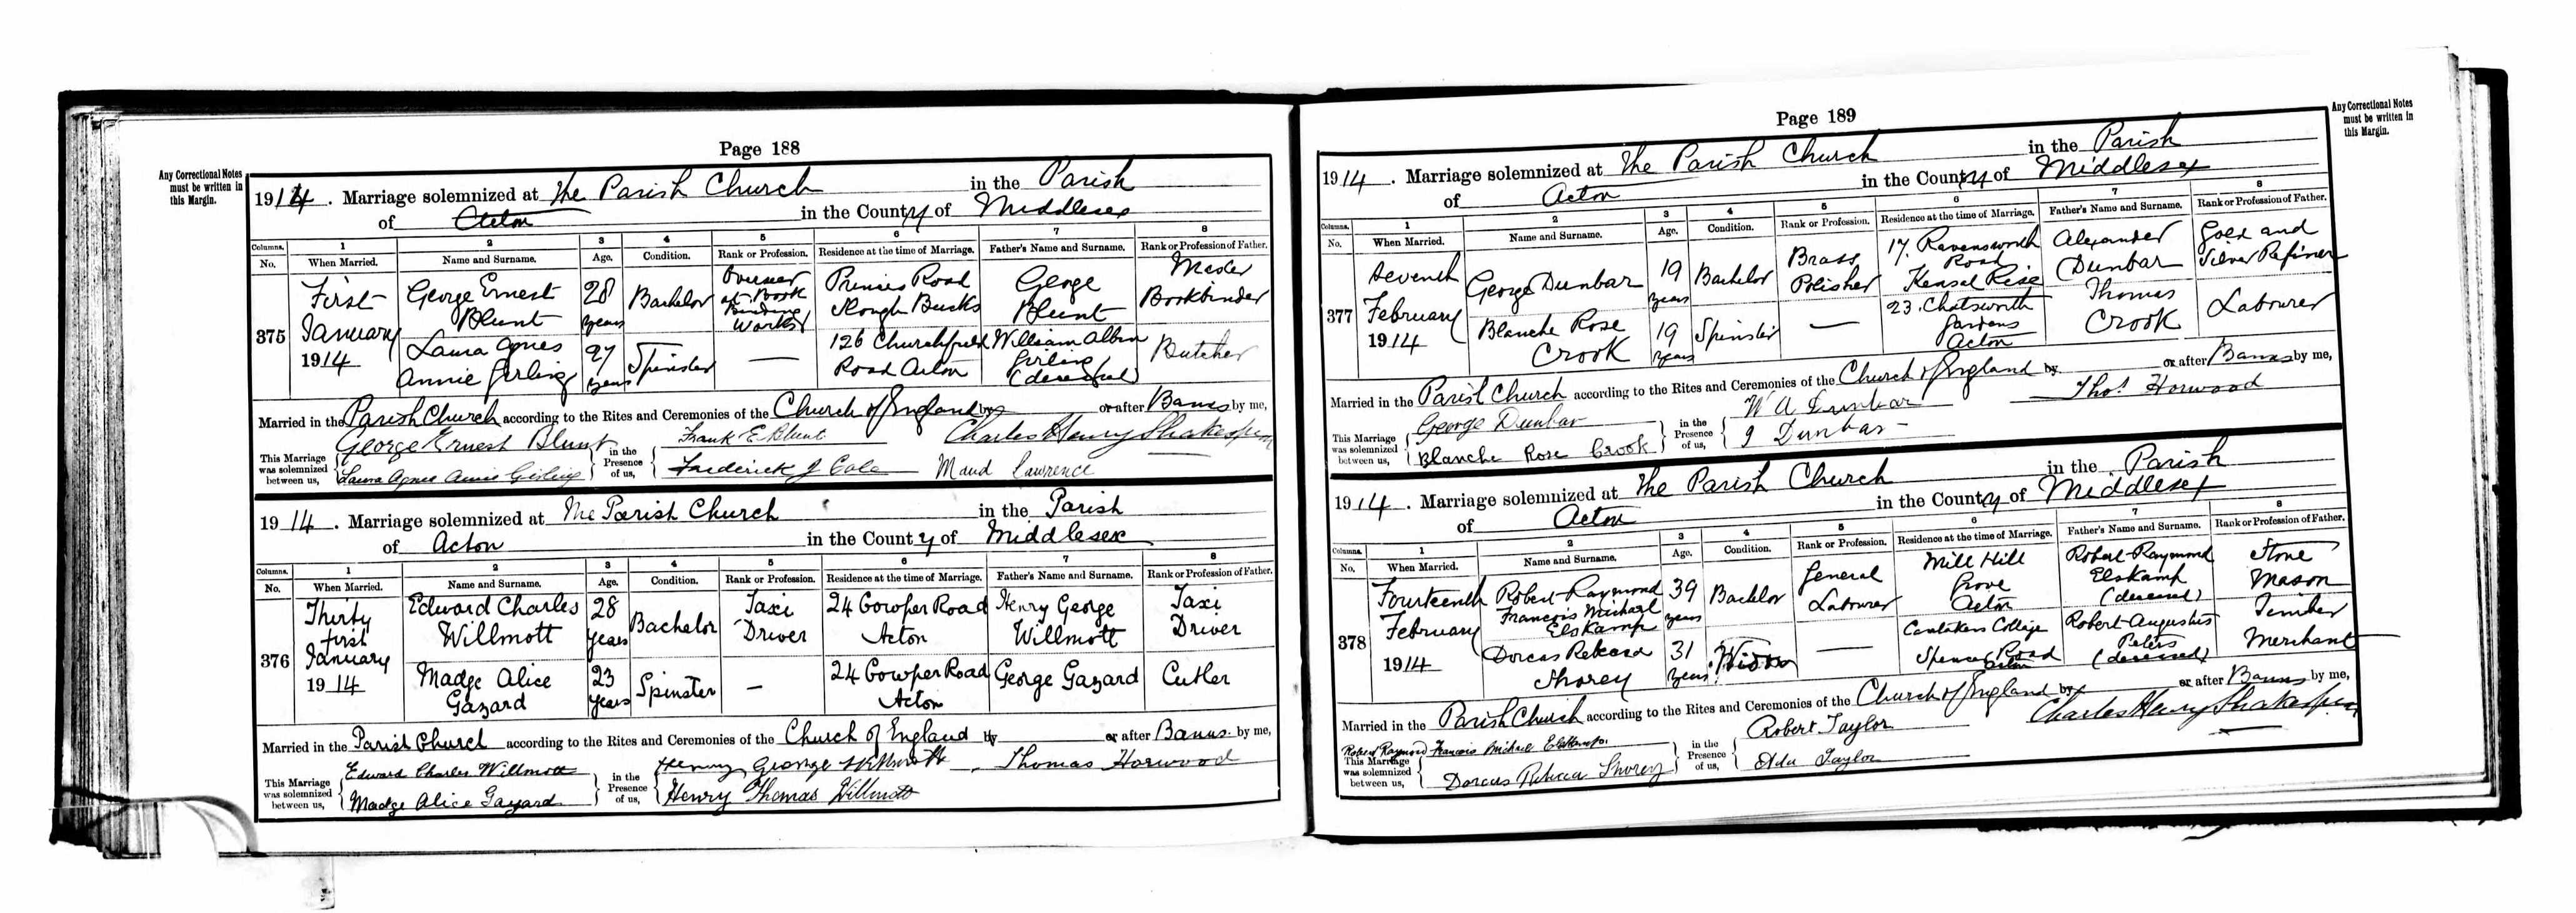 Page 188
Any Correctional Notes
must be written in
this Margin.
1914. Marriage solemnized at The Parish Church in the Parish
of Acton in the County of Middlesex
Columns. 1 2 3 4 5 6 7 8
No. When Married. Name and Surname. Age. Condition. Rank or Profession. Residence at the time of Marriage. Father's Name and Surname. Rank or Profession of Father.
375
First
January
1914
George Ernest
Blunt
28
years
Bachelor
at Book
Binding
Works
Princes Road
Slough Bucks
George
Blunt
Master
Bookbinder
Laura Agnes
Annie Girling
27
years
Spinster
—
126 Churchfield
Road Acton
William Albin
Girling
(deceased)
Butcher
Married in the Parish Church according to the Rites and Ceremonies of the Church of England by or after Banns by me,
George Ernest Blunt
Laura Agnes Annie Girling
This Marriage
was solemnized
between us,
in the
Presence
of us,
Frank E Blunt
Frederick J Cole Maud Lawrence
Charles Henry Shakespear
1914. Marriage solemnized at The Parish Church in the Parish
of Acton in the County of Middlesex
Columns. 1 2 3 4 5 6 7 8
No. When Married. Name and Surname. Age. Condition. Rank or Profession. Residence at the time of Marriage. Father's Name and Surname. Rank or Profession of Father.
376
Thirty
first
January
1914
Edward Charles
Willmott
28
years
Bachelor
Taxi
Driver
24 Cowper Road
Acton
Henry George
Willmott
Taxi
Driver
Madge Alice
Gazard
23
years
Spinster
—
24 Cowper Road
Acton
George Gazard
Cutler
Married in the Parish Church according to the Rites and Ceremonies of the Church of England by or after Banns by me,
Edward Charles Willmott
Madge Alice Gazard
This Marriage
was solemnized
between us,
in the
Presence
of us,
Henry George Willmott
Henry Thomas Willmott
Thomas Horwood
Page 189
Any Correctional Notes
must be written in
this Margin.
1914. Marriage solemnized at The Parish Church in the Parish
of Acton in the County of Middlesex
Columns. 1 2 3 4 5 6 7 8
No. When Married. Name and Surname. Age. Condition. Rank or Profession. Residence at the time of Marriage. Father's Name and Surname. Rank or Profession of Father.
377
Seventh
February
1914
George Dunbar
19
years
Bachelor
Brass
Polisher
17. Ravensworth
Road
Kensal Rise
Alexander
Dunbar
Gold and
Silver Refiner
Blanche Rose
Crook
19
years
Spinster
—
23. Chatsworth
Gardens
Acton
Thomas
Crook
Labourer
Married in the Parish Church according to the Rites and Ceremonies of the Church of England by or after Banns by me,
George Dunbar
Blanche Rose Crook
This Marriage
was solemnized
between us,
in the
Presence
of us,
W A Dunbar
J Dunbar
Thos. Horwood
1914. Marriage solemnized at The Parish Church in the Parish
of Acton in the County of Middlesex
Columns. 1 2 3 4 5 6 7 8
No. When Married. Name and Surname. Age. Condition. Rank or Profession. Residence at the time of Marriage. Father's Name and Surname. Rank or Profession of Father.
378
Fourteenth
February
1914
Robert Raymond
Francois Michael
Elskamp
39
years
Bachelor
General
Labourer
Mill Hill
Grove
Acton
Robert Raymond
Elskamp
(deceased)
Stone
Mason
Dorcas Rebecca
Shorey
31
years
Widow
—
Caretakers Cottage
Spencer Road
Acton
Robert Augustus
Peters
(deceased)
Timber
Merchant
Married in the Parish Church according to the Rites and Ceremonies of the Church of England by or after Banns by me,
Robert Raymond Francois Michael Elskamp
Dorcas Rebecca Shorey
This Marriage
was solemnized
between us,
in the
Presence
of us,
Robert Taylor
Ada Taylor
Charles Henry Shakespear